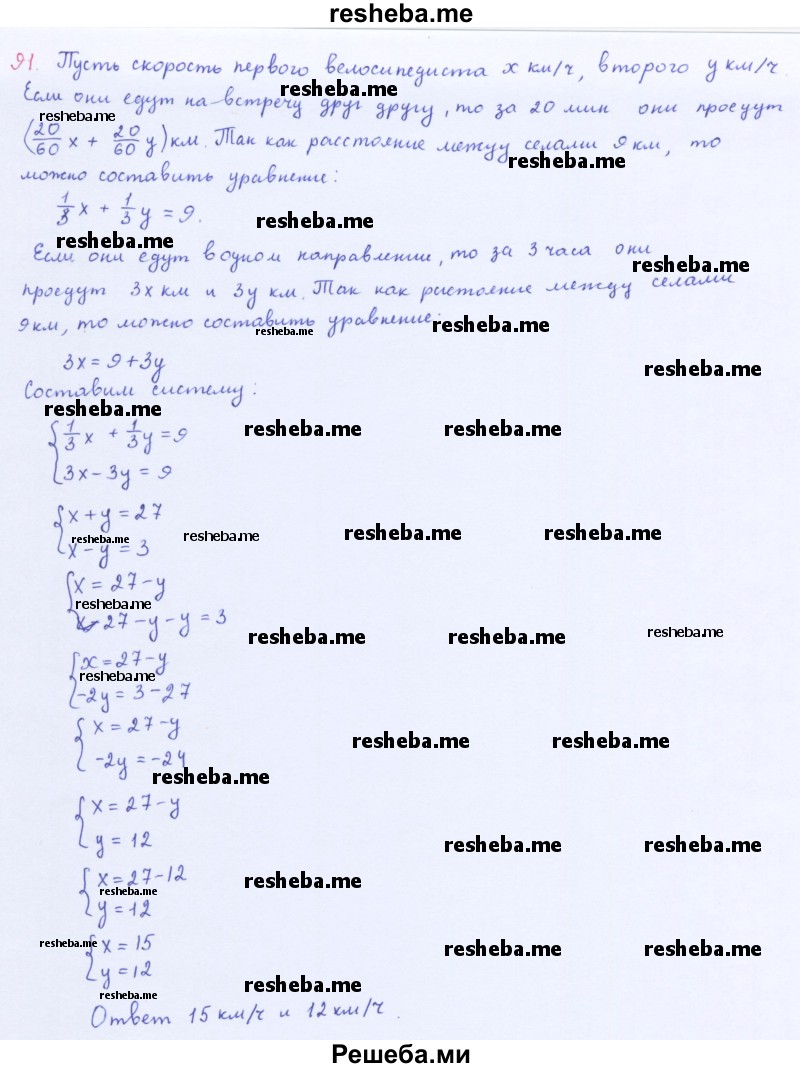 resheba.me
91. Пусть скорость первого велосипедиста x км/ч, второго y км/ч.
resheba.me
Если они едут на встречу друг другу, то за 20 мин они проедут
resheba.me
(20/60 x + 20/60 y) км. Так как расстояние между селами 9 км, то
resheba.me
можно составить уравнение:
1/3 x + 1/3 y = 9.
resheba.me
resheba.me
Если они едут в одном направлении, то за 3 часа они
resheba.me
проедут 3x км и 3y км. Так как растояние между селами
9 км, то можно составить уравнение:
resheba.me resheba.me
3x = 9 + 3y
resheba.me
Составим систему:
resheba.me
{ 1/3 x + 1/3 y = 9
resheba.me resheba.me
3x - 3y = 9
{ x + y = 27
resheba.me resheba.me resheba.me resheba.me
x - y = 3
{ x = 27 - y
resheba.me
27 - y - y = 3
resheba.me resheba.me resheba.me
{ x = 27 - y
resheba.me
-2y = 3 - 27
{ x = 27 - y
resheba.me resheba.me
-2y = -24
resheba.me
{ x = 27 - y
y = 12
resheba.me resheba.me
{ x = 27 - 12
resheba.me
resheba.me
y = 12
resheba.me
{ x = 15
resheba.me resheba.me
y = 12
resheba.me
resheba.me
Ответ 15 км/ч и 12 км/ч.
Решеба.ми